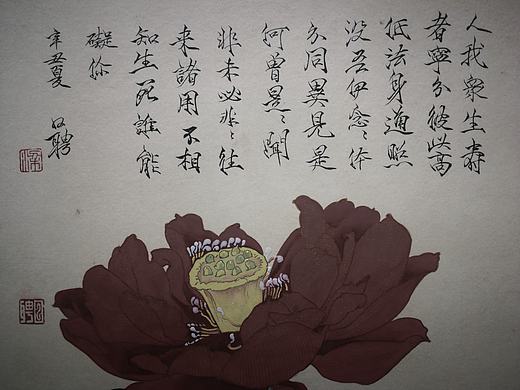 人我衆生壽
者寧分彼此高
低法身通照
没吾伊念〻体
分同異見是
何曾是〻聞
非未必非〻往
来諸用不相
知生死誰能
礙你
辛丑夏
聘